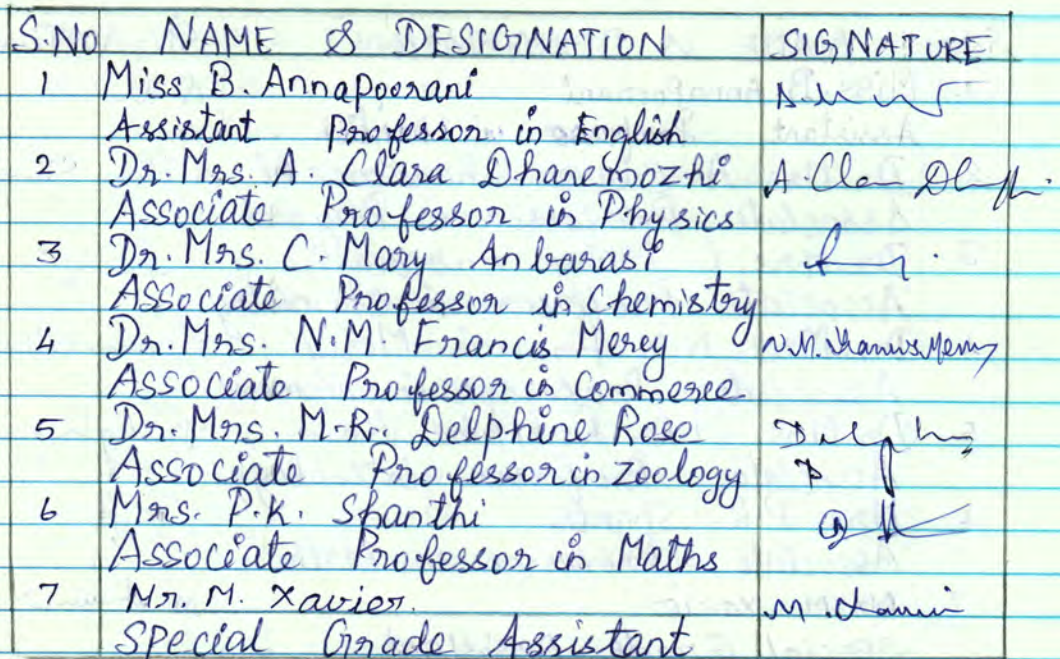 S.NO NAME & DESIGNATION SIGNATURE
1 Miss B. Annapoorani
Assistant Professor in English
2 Dr. Mrs. A. Clara Dhanemozhi
Associate Professor in Physics
3 Dr. Mrs. C. Mary Anbarasi
Associate Professor in Chemistry
4 Dr. Mrs. N.M. Francis Mercy N.M. Francis Mercy
Associate Professor in Commerce
5 Dr. Mrs. M.R. Delphine Rose
Associate Professor in Zoology
6 Mrs. P.K. Shanthi
Associate Professor in Maths
7 Mr. M. Xavier. M. Xavier
Special Grade Assistant